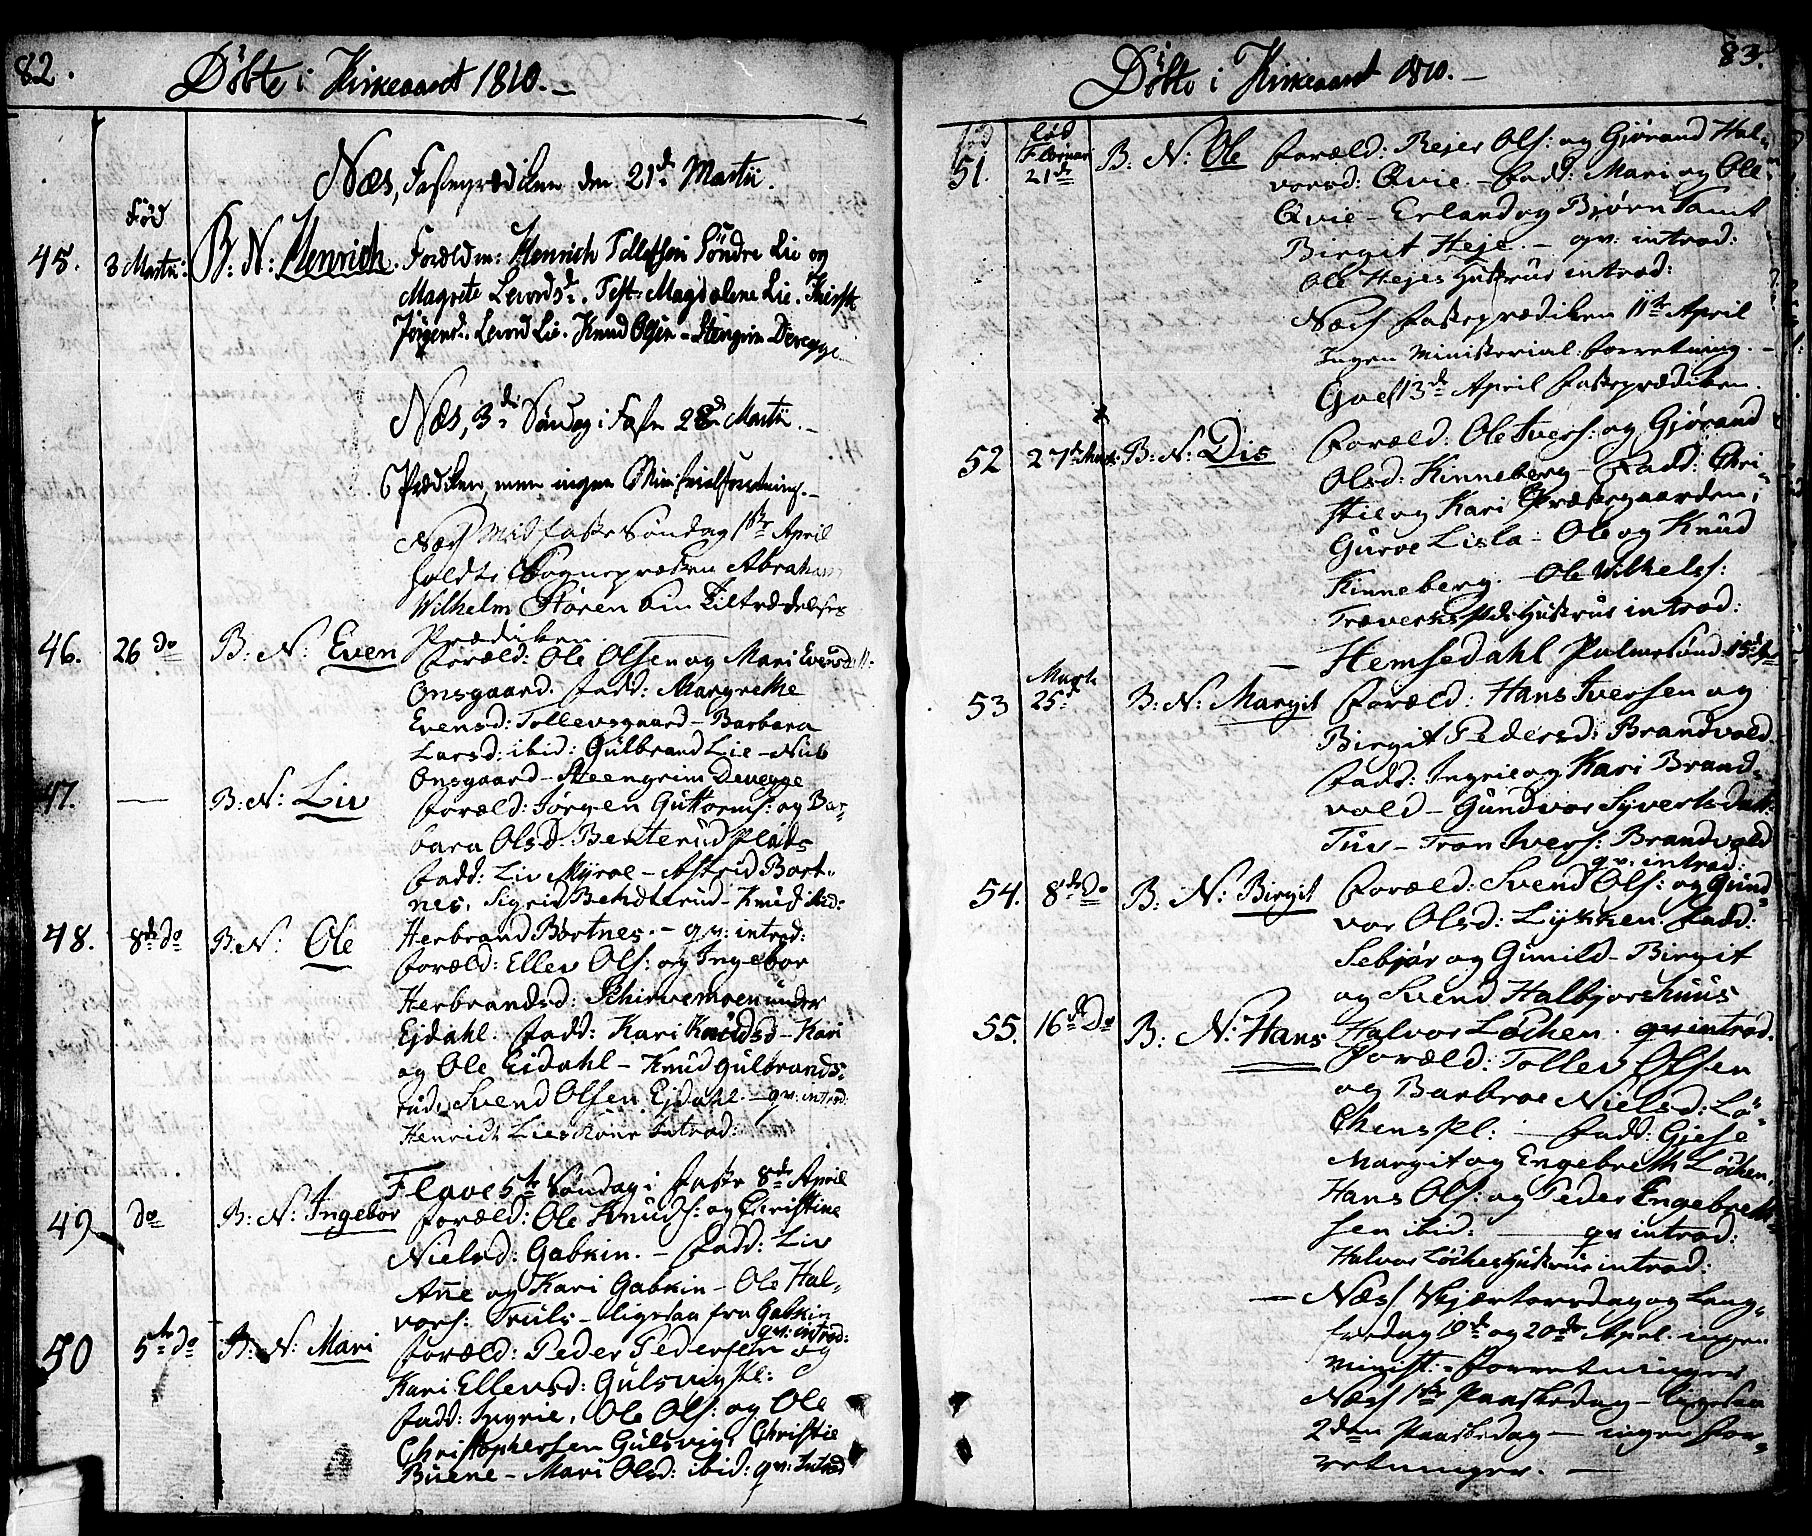 82.
Döbte i Kirkeaaret 1810.
Næs, Fasteprædiken den 21de Martii.
Fød
45. 3 Martii: B: N: Henrich. Forældre: Henrich Tollefsen Søndre Lie og
Magrete Levordsd. Test: Magdalene Lie. Kirst:
Jörgensd. Levord Lie. Knud Olsen - Stengrim Devegge
Næs, 3de Søndag i Faste 28de Martii.
Prædiken, men ingen Ministerialforretning.
Næs Midfaste Søndag 1ste April
holdt Sognepræsten Abraham
Wilhelm Støren sin Tiltrædelses
Prædiken.
46. 26 do B: N: Even Foræld: Ole Olsen og Mari Evensd:
Onsgaard. Fadd: Margrethe
Evensd: Tollevsgaard - Barbara
Larsd: ibid: Gulbrand Lie - Nub
Onsgaard - Steengrim Devegge
47. — B: N: Liv Foræld: Jørgen Guttorms: og Bar-
bara Olsd: Benterud Plads
Fadd: Liv Myroe - Astrid Bort-
nes. Sigrid Behnterud - Knud ibid:
Herbrand Børtnes. - qv: introd:
48. 8de do B: N: Ole Foræld: Ellev Ols: og Ingebor
Herbrandsd: Schirvemoen under
Ejdahl. Fadd: Kari Knudsd - Kari
og Ole Eidahl - Knud Gulbrands-
rud, Svend Olsen Ejdahl. - qv: introd:
Henrich Lies Kone Introd:
Flaae 5te Søndag i Faste 8de April
49 do B: N: Ingebor Foræld: Ole Knuds: og Christine
Nielsd: Gabkin. - Fadd: Liv
Añe og Kari Gabkin - Ole Hal-
vors: Truls - ligesaa fra Gabkin
qv: introd:
50 5te do B: N: Mari Foræld: Peder Pedersen og
Kari Ellevsd: Gulsvig Pl:
Fadd: Ingrie, Ole Ols: og Ole
Christophersen Gulsvig, Christie
Buene - Mari Olsd: ibid: qv: Introd
83.
Döbte i Kirkeaaret 1810.
fød
Februar
51. 21de B: N: Ole Foræld: Rejer Ols: og Gjørand Hal-
vorsd: Qvie. - Fadd: Mari og Ole
Qvie - Erland og Biørn samt
Birgit Heje. - qv: introd:
Ole Hejes Hustrue introd:
Næs Fasteprædiken 11te April
Ingen Ministerial: forretning.
Goel 13de April Fasteprædiken.
52 27de Marti B: N: Dis Foræld: Ole Ivers: og Gjørand
Olsd: Kinneberg - Fadd: Chri-
stie og Kari Præstegaarden,
Guroe Lisla - Ole og Knud
Kinneberg. - Ole Wilhels:
Træverks Pl: Hustrue introd:
Hemsedahl Palmesønd: 15de Apr
53 Marti 25de B: N: Margit Foræld: Hans Iversen og
Birgit Pedersd: Brandvold.
Fadd: Ingrie og Kari Brand-
vold - Gundvor Syvertsdatt:
Tuv - Tron Ivers: Brandvold
qv: introd:
54. 8de Do B: N: Birgit Foræld: Svend Ols: og Gund-
vor Olsd: Lykken. Fadd:
Sebjør og Gunild - Birgit
og Svend Halbjorshuus
Halvor Løchen. qv: introd.
55. 16de Do B: N: Hans Foræld: Tollev Olsen
og Barbroe Nielsd: Lø-
chens Pl: - Fadd: Gjese
Margit og Engebreth Løchen,
Hans Ols: og Peder Engebreth-
sen ibid: qv: introd:
Halvor Løches Hustrue introd:
Næs Skjærtorsdag og Lang-
fredag 19de og 20de April. ingen
minist:- Forretninger
Næs 1ste Paaskedag - ligesaa
2den Paaskedag - ingen For-
retninger. —